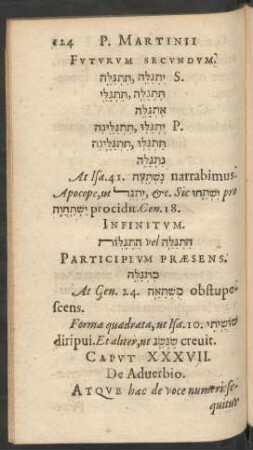 124 P. MARTINII
FVTVRVM SECVNDVM.
יִתְגַּלֶּה, תִּתְגַּלֶּה S.
תִּתְגַּלֶּה, תִּתְגַּלִּי
אֶתְגַּלֶּה
יִתְגַּלּוּ, תִּתְגַּלֶּינָה P.
תִּתְגַּלּוּ, תִּתְגַּלֶּינָה
נִתְגַּלֶּה
At Isa. 41. נִשְׁתָּעֶה narrabimus.
Apocope, ut יִתְגַּל, &c. Sic יִשְׁתַּחוּ pro
יִשְׁתַּחֲוֶה procidit. Gen. 18.
INFINITVM.
הִתְגַּלֵּה vel הִתְגַּלּוֹת
PARTICIPIVM PRÆSENS.
מִתְגַּלֶּה
At Gen. 24. מִשְׁתָּאֵה obstupe-
scens.
Forma quadrata, ut Isa. 10. שׁוֹשֵׂיתִי
diripui. Et aliter, ut creuit.
CAPVT XXXVII.
De Aduerbio.
ATQVE hæc de voce numeri: se-
quitur